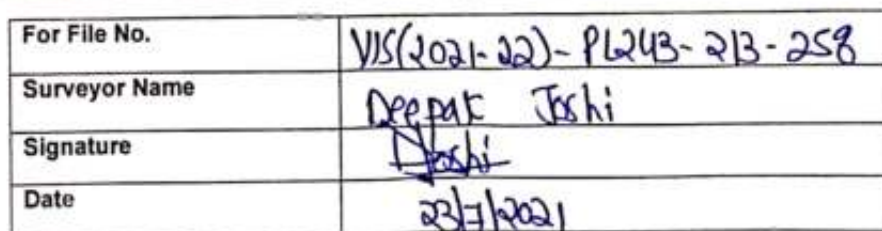 For File No. VIS(2021-22)-PL243-213-258
Surveyor Name Deepak Joshi
Signature Djoshi
Date 23/7/2021